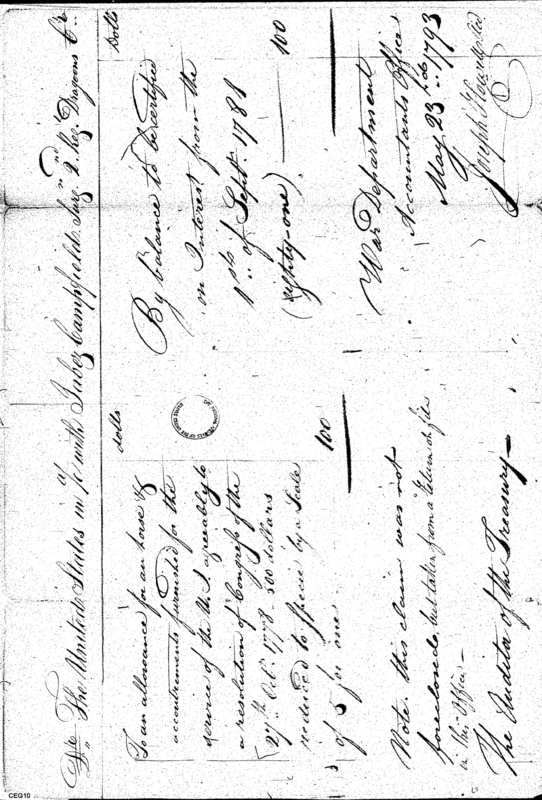 Dr. The United States in a/c with Jabez Campfield Surgn. 2d. Reg. Dragoons Cr.
dolls
To an allowance for an horse &
accoutrements furnished for the
service of the U.S. agreeably to
a resolution of Congress of the
27th. Octr. 1778 - 500 dollars
reduced to specie by a scale
of 5 for one
100
Note. this claim was not
foreclosed but taken from a return on file
in this Office -
The Auditor of the Treasury -
Dolls
By balance to be certified
on Interest from the
1st. of Septr. 1781
(eighty-one)
100
War Department
Accountants Office
May 23d. 1793
Joseph Howell
CEG10